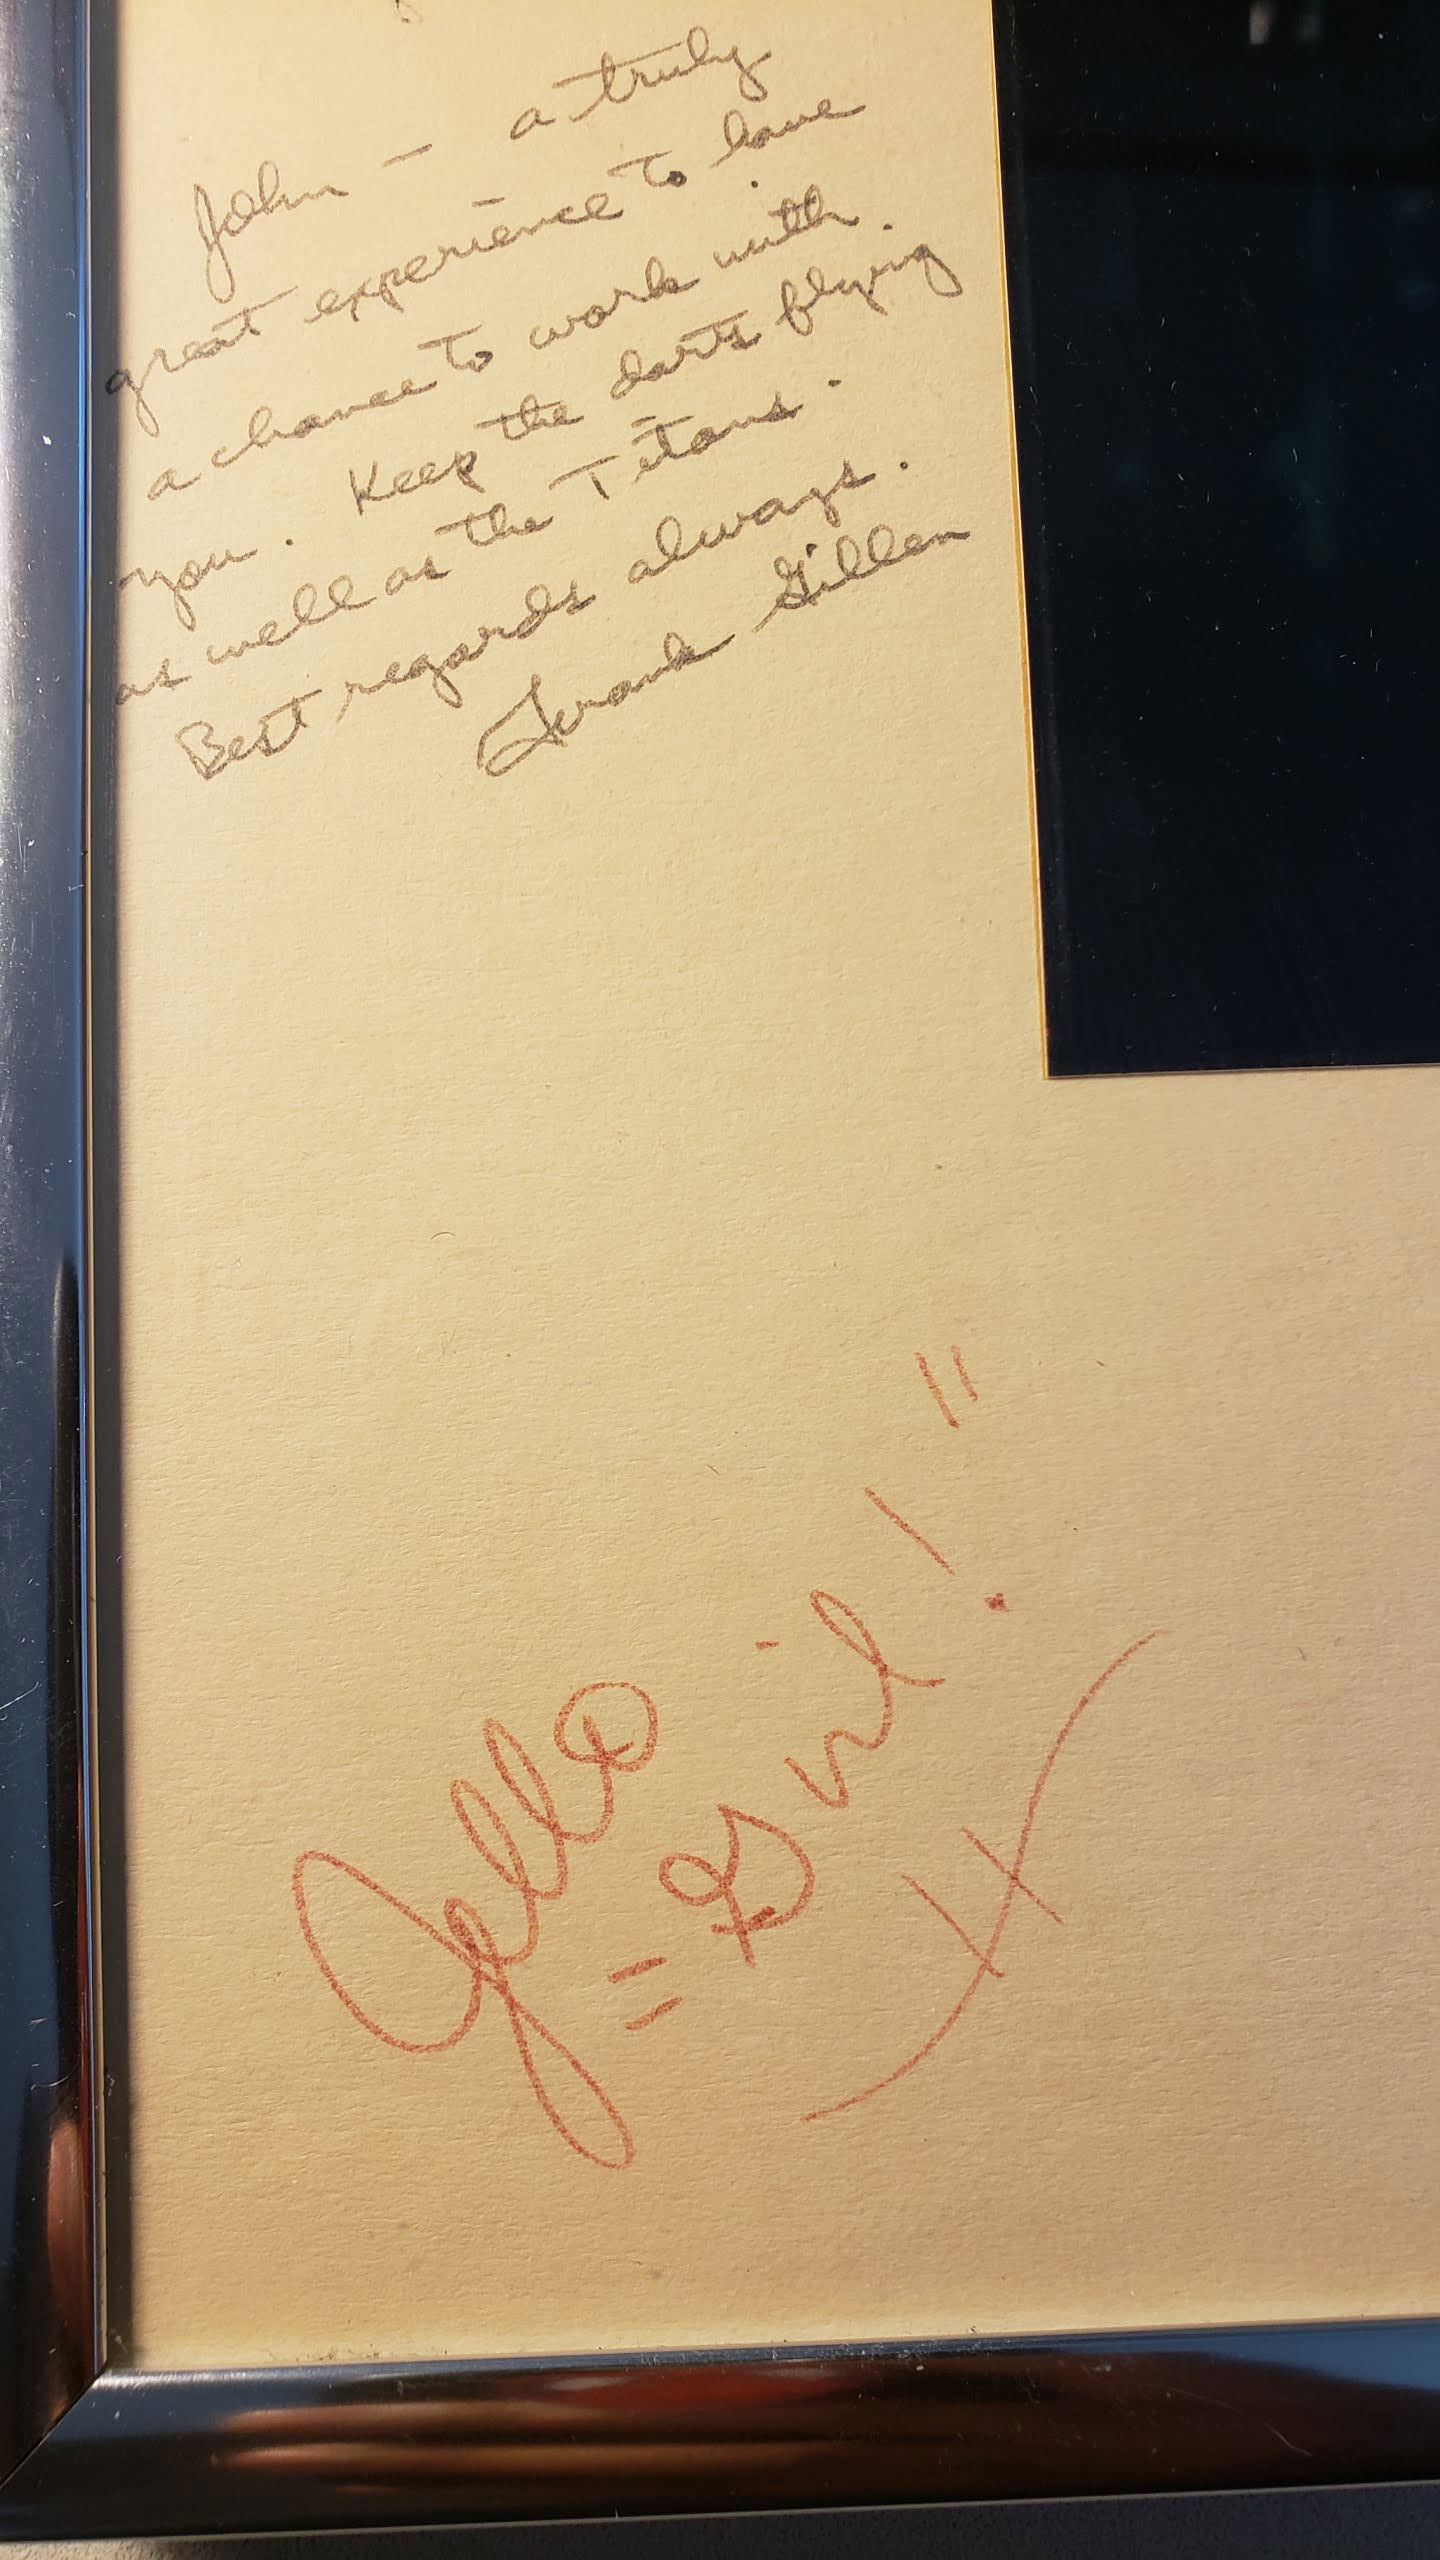 John – a truly
great experience to have
a chance to work with
you. Keep the darts flying
as well as the Titans.
Best regards always.
Frank Gillen
Jello
= Gril! "